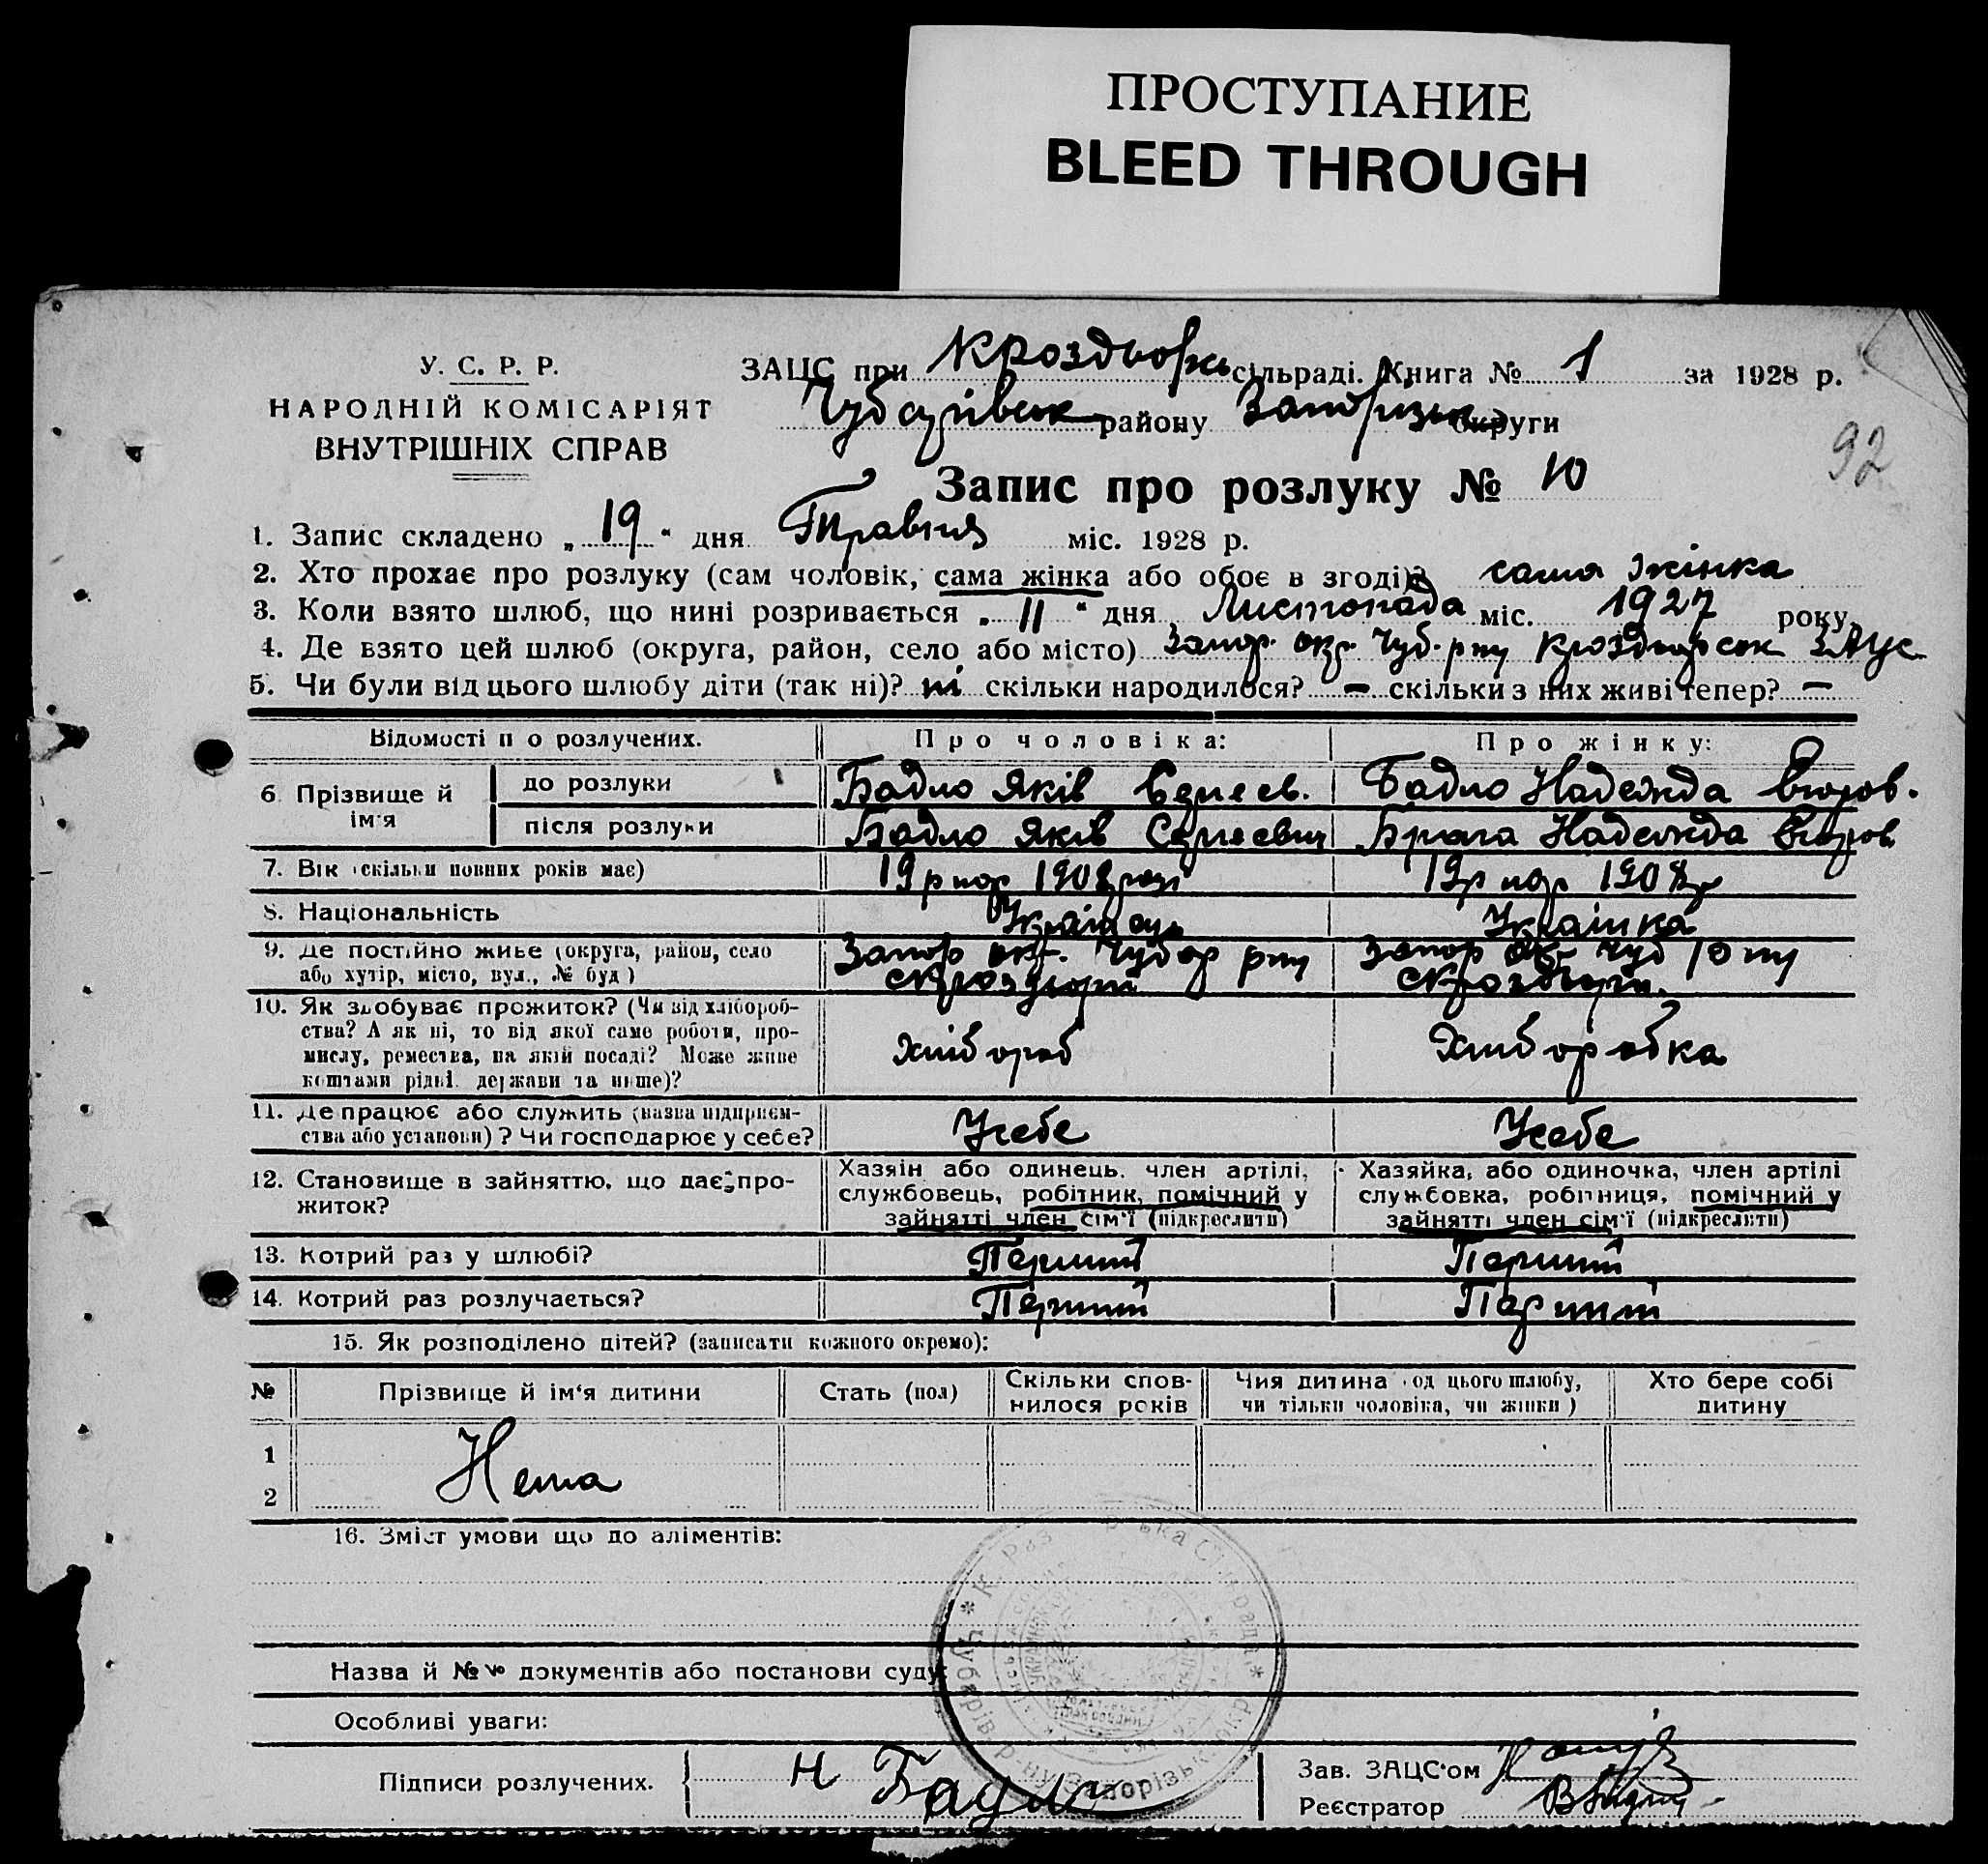 ПРОСТУПАНИЕ
BLEED THROUGH
У. С. Р. Р.
НАРОДНІЙ КОМІСАРІЯТ
ВНУТРІШНІХ СПРАВ
ЗАЦС при Кроздьорсь сільраді. Книга № 1 за 1928 р.
району Запоризьк округи
92
Запис про розлуку № 10
1. Запис складено „ 19 “ дня Травня міс. 1928 р.
2. Хто прохає про розлуку (сам чоловік, сама жінка або обоє в згоді)? сама жінка
3. Коли взято шлюб, що нині розривається „ 11 “ дня Листопада міс. 1927 року
4. Де взято цей шлюб (округа, район, село або місто) Запор. окр. Чуб. р ну Кроздьорськ ЗАЦС
5. Чи були від цього шлюбу діти (так ні)? ні скільки народилося? — скільки з них живі тепер? —
Відомости п о розлучених. Про чоловіка: Про жінку:
6. Прізвище й ім'я
до розлуки Бадло Яків Бадло Надежда Егоров.
після розлуки Бадло Яків Сергиевич Брага Надежда Егоров
7. Вік (скільки повних років має) 19 р нар 1908 року 19 р нар 1908 р
8. Національність Українець Українка
9. Де постійно живе (округа, район, село або хутір, місто, вул., № буд) Запор окр. Чубар р ну с Кроздьори Запор окр Чуб р ну с Кроздьори.
10. Як здобуває прожиток? (Чи від хлібороб-
ства? А як ні, то від якої саме роботи, про-
мислу, ремества, на якій посаді? Може живе
коштами рідні. держави та инше)?
Хлібороб Хліборобка
11. Де працює або служить (назва підприєм-
ства або установи)? Чи господарює у себе?
У себе У себе
12. Становище в зайняттю, що дає про-
житок?
Хазяїн або одинець. член артілі,
службовець, робітник, помічний у
зайнятті член сім'ї (підкреслити)
Хазяйка, або одиночка, член артілі
службовка, робітниця, помічний у
зайнятті член сім'ї (підкреслити)
13. Котрий раз у шлюбі? Перший Перший
14. Котрий раз розлучається? Перший Перший
15. Як розподілено дітей? (записати кожного окремо):
№ Прізвище й ім'я дитини Стать (пол) Скільки спов-
нилося років Чия дитина (од цього шлюбу,
чи тільки чоловіка, чи жінки) Хто бере собі
дитину
1
2
Нема
16. Зміст умови що до аліментів:
Назва й №№ документів або постанови суду:
Особливі уваги:
Підписи розлучених. Н Бадло
Зав. ЗАЦС'ом
Реєстратор